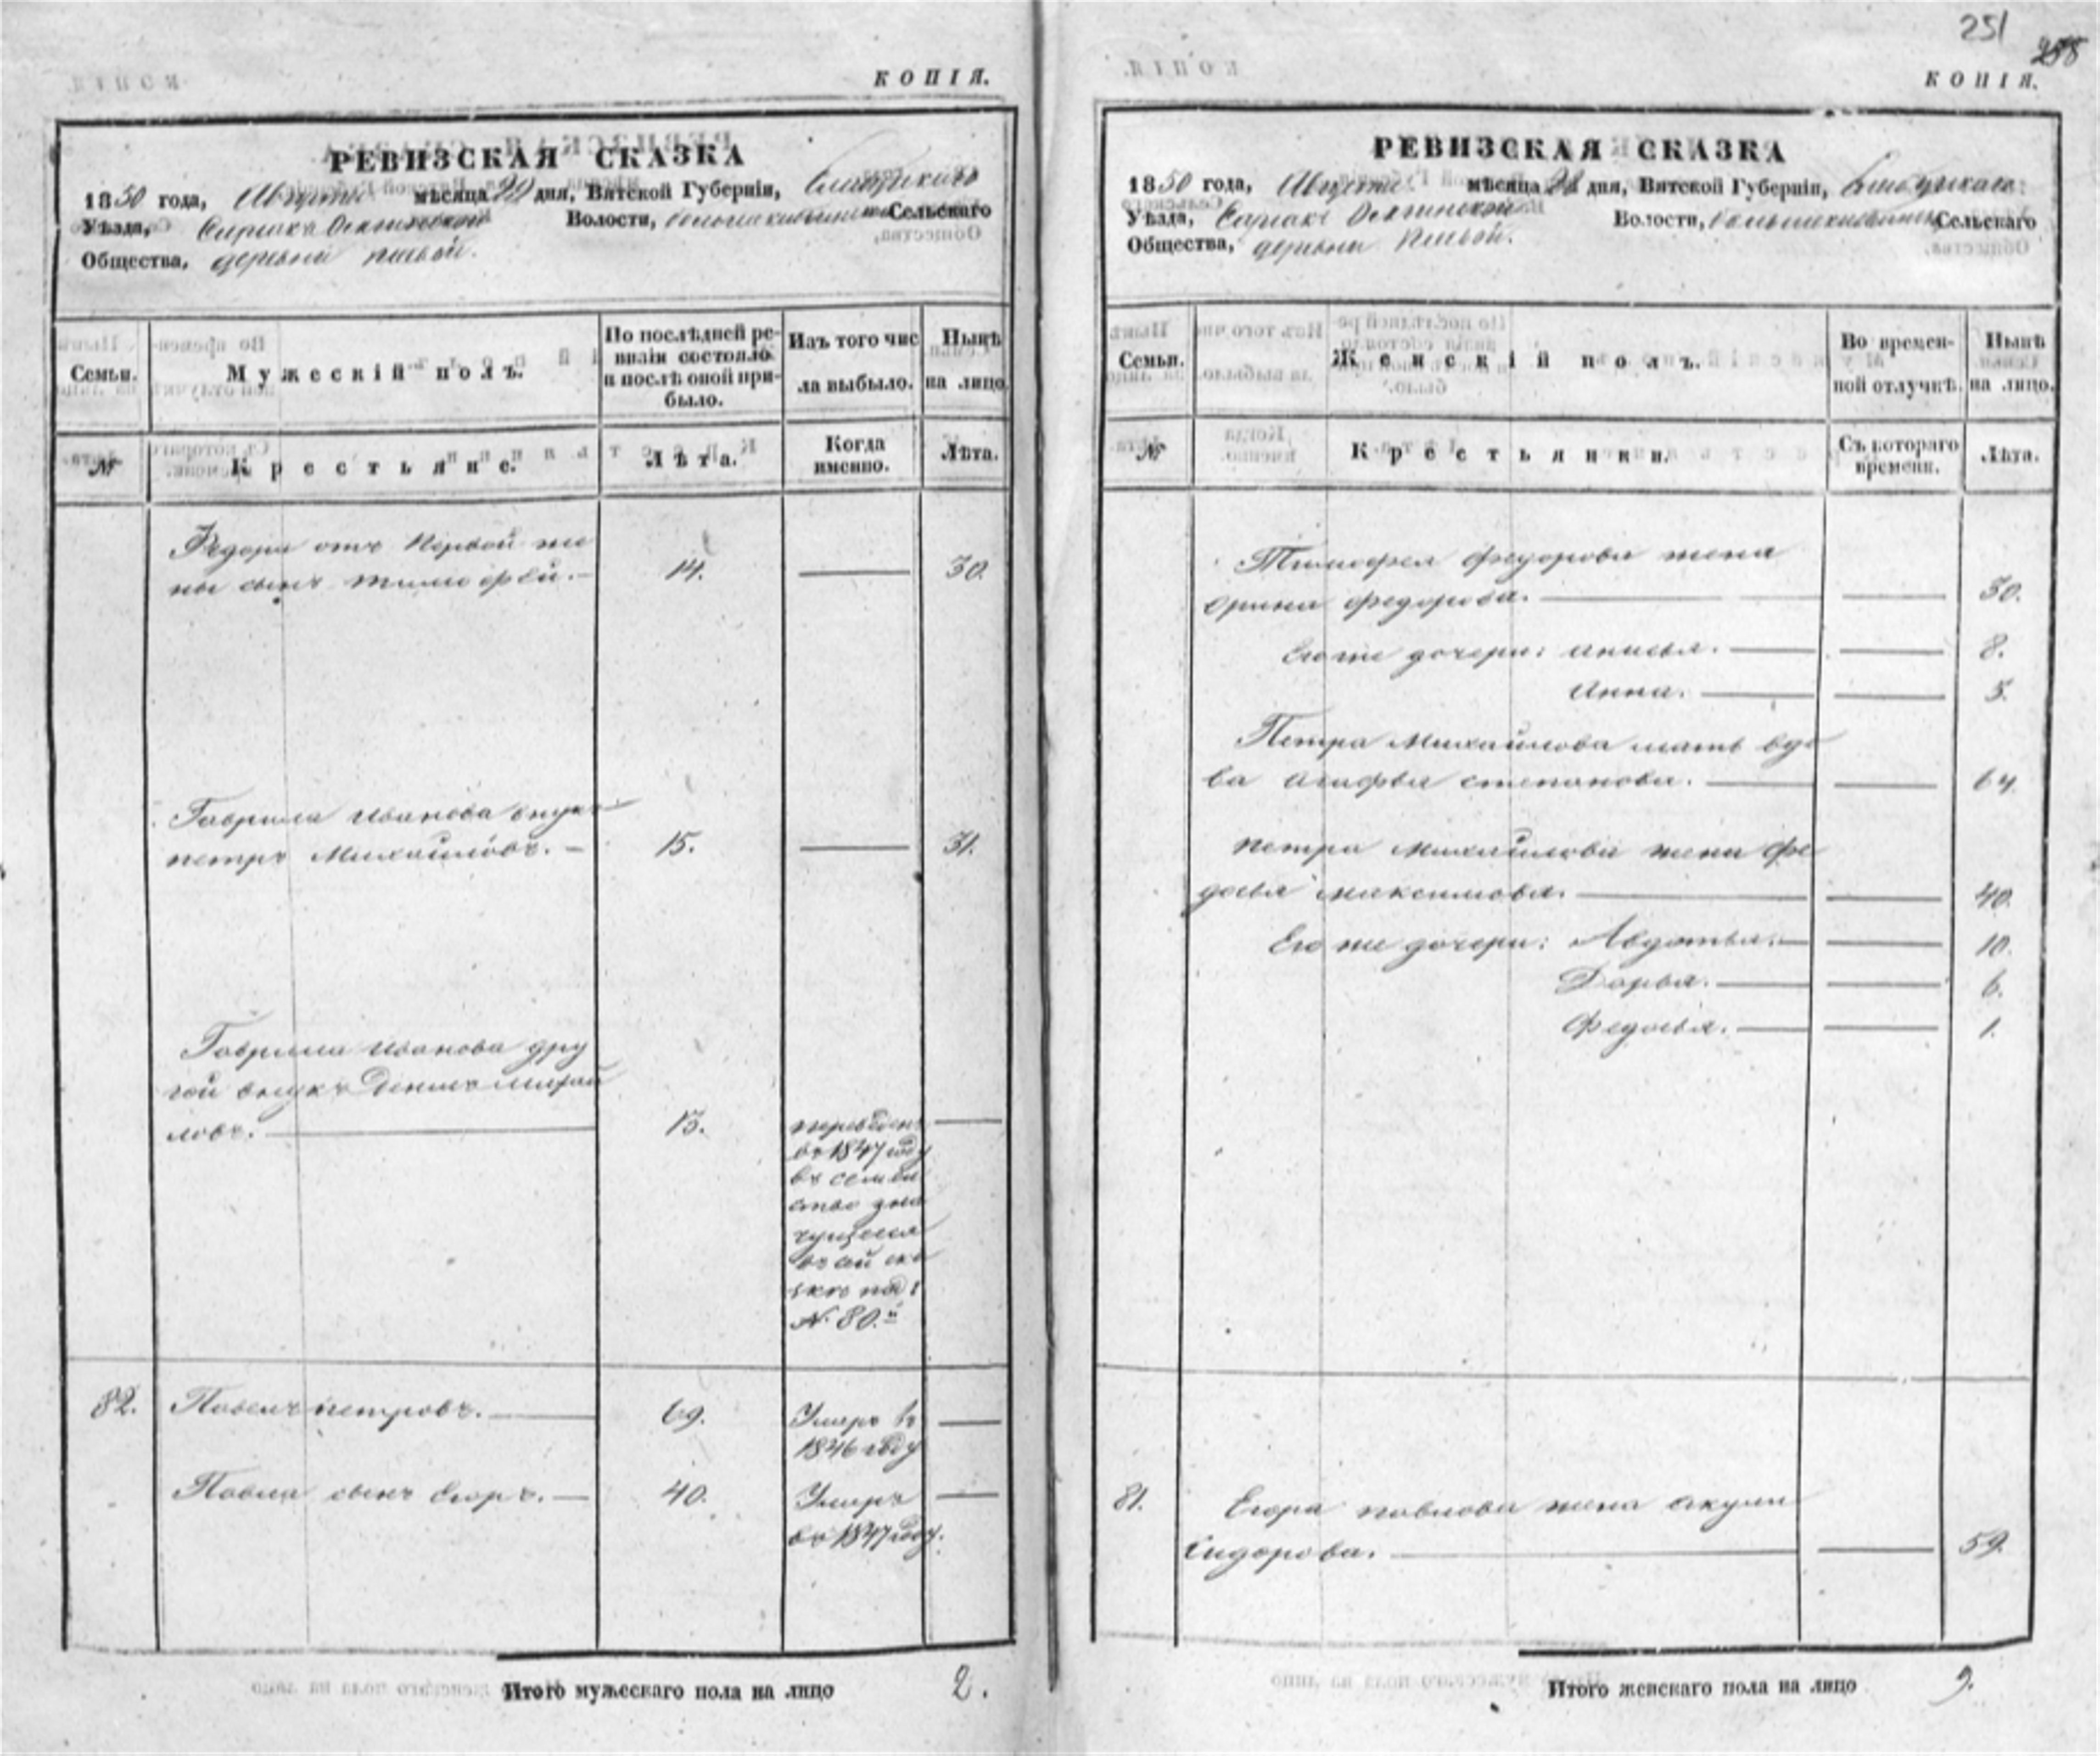 251
258
КОПІЯ.
РЕВИЗСКАЯ СКАЗКА
1850 года, Августа мѣсяца 20 дня, Вятской Губерніи, Елабужскаго
Уѣзда, Волости, Сельскаго
Общества, деревни
Семьи.
Мужескій полъ.
По послѣдней ре-
визіи состояло
и послѣ оной при-
было.
Изъ того чис
ла выбыло.
Нынѣ
на лицо
№
Крестьяне.
Лѣта.
Когда
именно.
Лѣта.
Федора отъ первой же
ны сынъ тимофѣй. 14. 30.
Гаврила Иванова внукъ
петръ Михайловъ. 15. 31.
Гаврила Иванова дру
гой внукъ Денисъ михай
ловъ. 13. переведенъ
въ 1847 году
въ семей
ство зна
чущееся
въ сей ска
зкѣ под
№ 80.й
82. Павелъ петровъ. 69. Умеръ въ
1846 году
Павла сынъ Егоръ. 40. Умеръ
въ 1847 году.
Итого мужескаго пола на лицо 2.
КОПІЯ.
РЕВИЗСКАЯ СКАЗКА
1850 года, Августа мѣсяца дня, Вятской Губерніи, Елабужскаго
Уѣзда, Волости, Сельскаго
Общества, деревни
Семьи.
Женскій полъ.
Во времен-
ной отлучкѣ.
Нынѣ
на лицо.
№
Крестьянки.
Съ котораго
времени.
Лѣта.
Тимофея федорова жена
Орина федорова. 30.
Его же дочери: анисья. 8.
Анна. 5.
Петра Михайлова мать вдо
ва агафья степанова. 64.
петра михайлова жена фе
досья максимова. 40.
Его же дочери: Авдотья. 10.
Дарья. 6.
Федосья. 1.
81. Егора павлова жена акули
Сидорова. 59.
Итого женскаго пола на лицо 9.